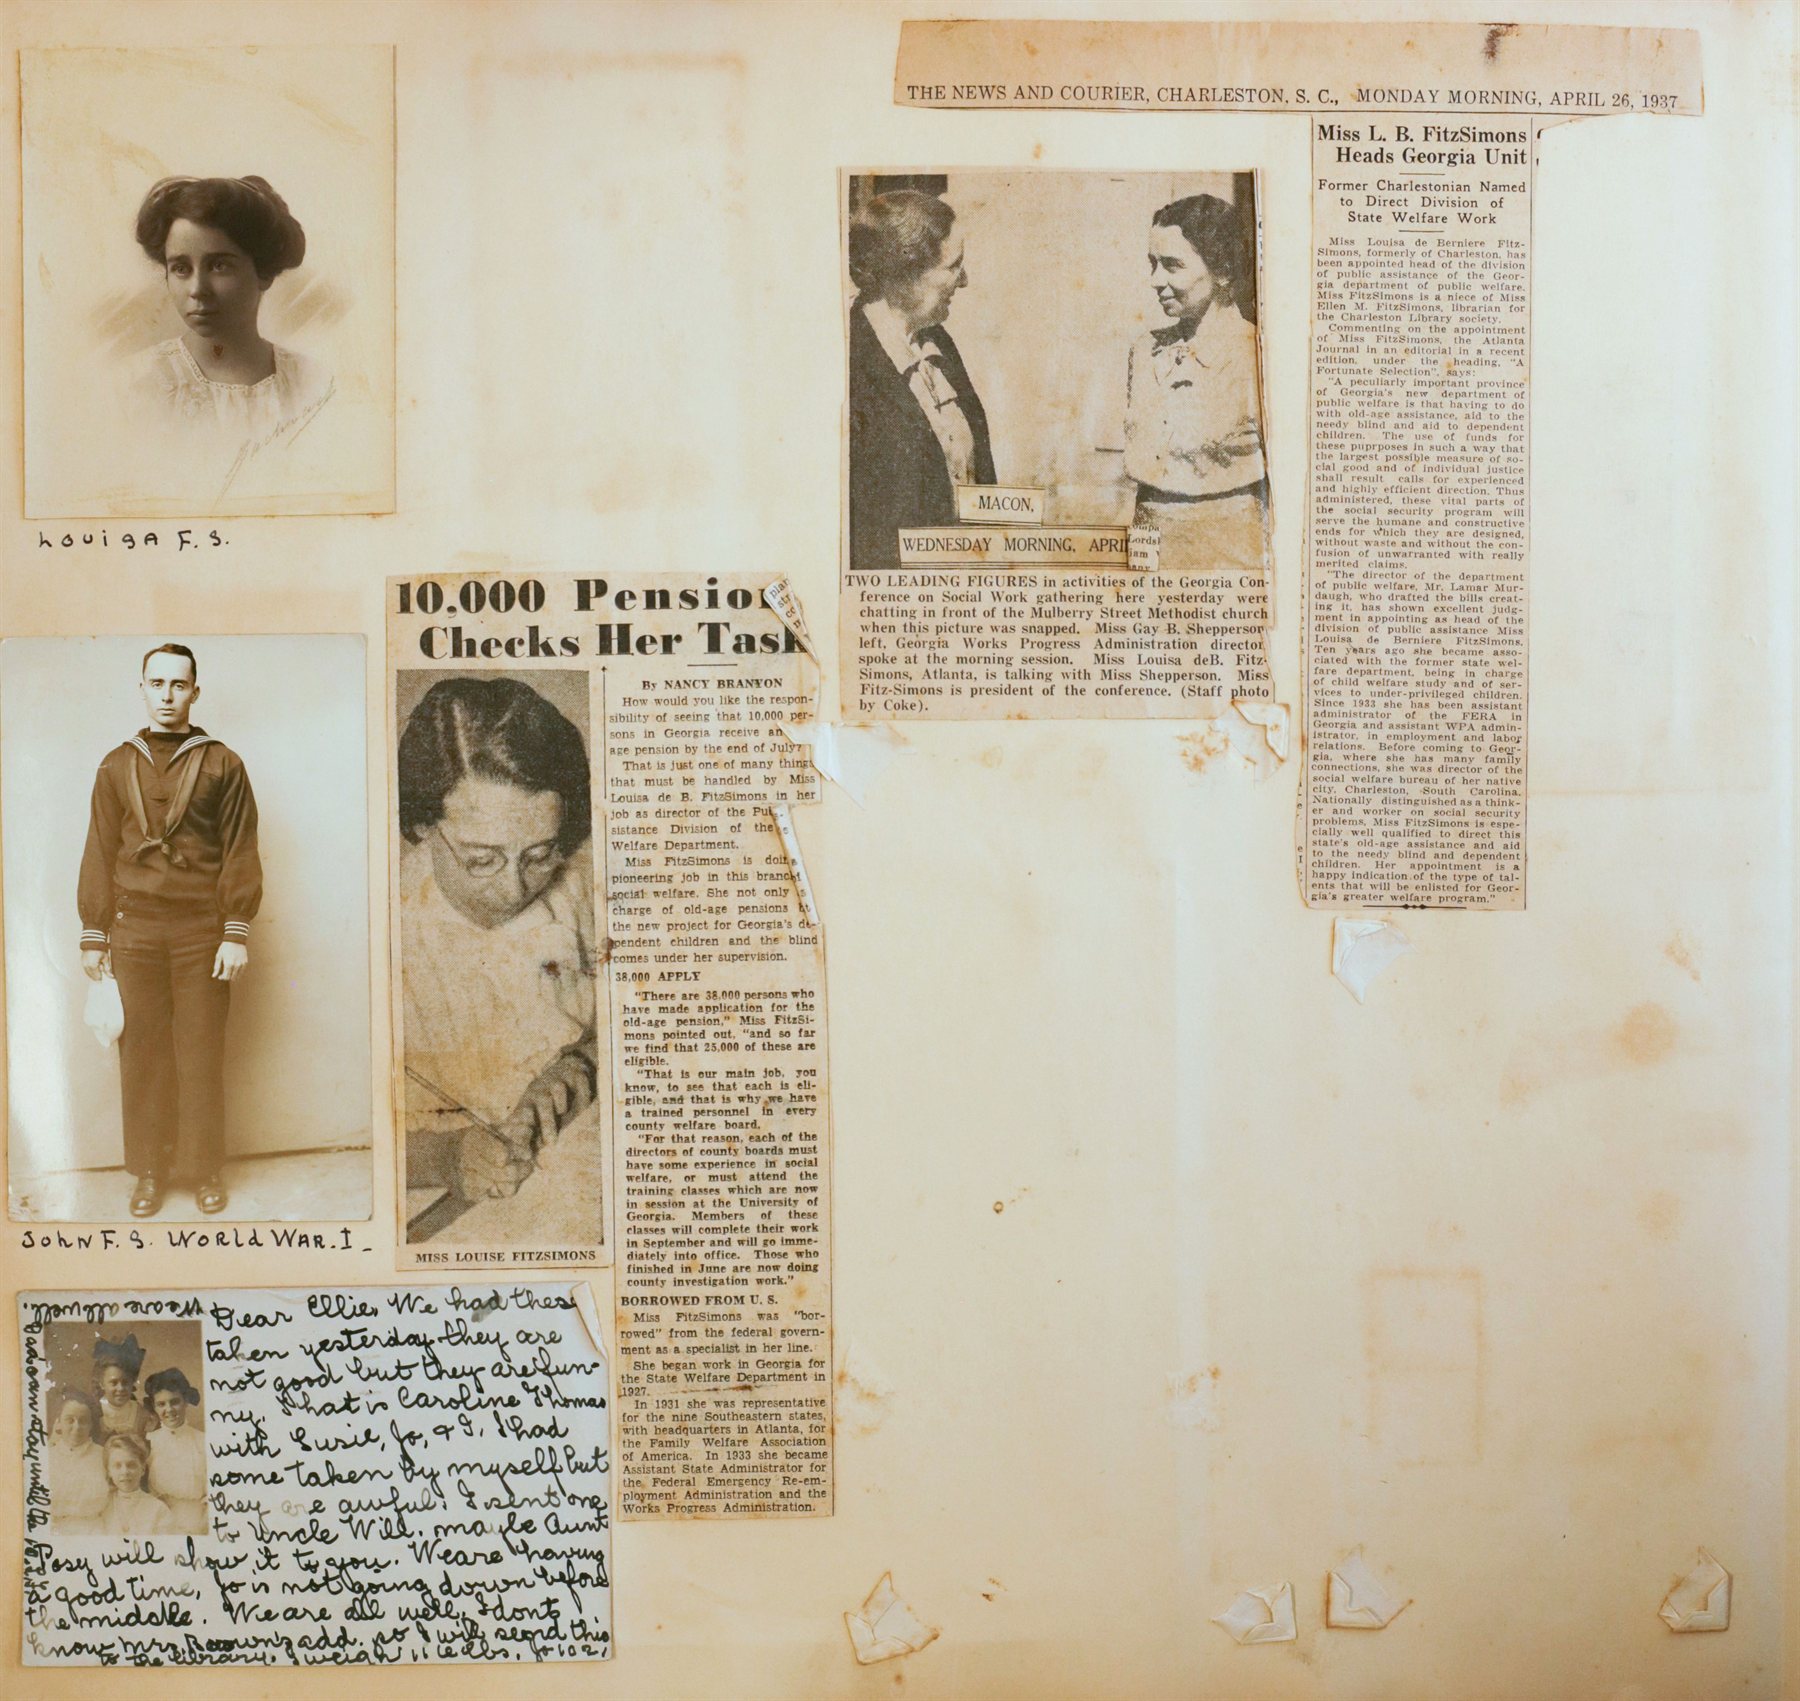 LOUISA F.S.
JOHN F.S. WORLD WAR.I
We are all well.
Dear Ellie, We had these
taken yesterday they are
not good but they are fun-
ny. That is Caroline Thomas
with Susie, Jo, & I. I had
some taken by myself but
they are awful. I sent one
to Uncle Will. maybe Aunt
Posy will show it to you. We are having
a good time, Jo is not going down before
the middle. We are all well, I dont
know Mrs. Brown's add. so I will send this
to the library. I weigh 116 lbs. Jo 102,
10,000 Pension
Checks Her Task
By NANCY BRANYON
How would you like the respon-
sibility of seeing that 10,000 per-
sons in Georgia receive an
age pension by the end of July?
That is just one of many things
that must be handled by Miss
Louisa de B. FitzSimons in her
job as director of the Pu
sistance Division of the
Welfare Department.
Miss FitzSimons is doi
pioneering job in this branch
social welfare. She not only
charge of old-age pensions
the new project for Georgia's de-
pendent children and the blind
comes under her supervision.
38,000 APPLY
"There are 38,000 persons who
have made application for the
old-age pension," Miss FitzSi-
mons pointed out, "and so far
we find that 25,000 of these are
eligible.
"That is our main job, you
know, to see that each is eli-
gible, and that is why we have
a trained personnel in every
county welfare board.
"For that reason, each of the
directors of county boards must
have some experience in social
welfare, or must attend the
training classes which are now
in session at the University of
Georgia. Members of these
classes will complete their work
in September and will go imme-
diately into office. Those who
finished in June are now doing
county investigation work."
BORROWED FROM U. S.
Miss FitzSimons was "bor-
rowed" from the federal govern-
ment as a specialist in her line.
She began work in Georgia for
the State Welfare Department in
1927.
In 1931 she was representative
for the nine Southeastern states,
with headquarters in Atlanta, for
the Family Welfare Association
of America. In 1933 she became
Assistant State Administrator for
the Federal Emergency Re-em-
ployment Administration and the
Works Progress Administration.
MISS LOUISE FITZSIMONS
MACON,
WEDNESDAY MORNING, APRI
TWO LEADING FIGURES in activities of the Georgia Con-
ference on Social Work gathering here yesterday were
chatting in front of the Mulberry Street Methodist church
when this picture was snapped. Miss Gay B. Shepperson
left, Georgia Works Progress Administration director
spoke at the morning session. Miss Louisa deB. Fitz-
Simons, Atlanta, is talking with Miss Shepperson. Miss
Fitz-Simons is president of the conference. (Staff photo
by Coke).
THE NEWS AND COURIER, CHARLESTON, S. C., MONDAY MORNING, APRIL 26, 1937
Miss L. B. FitzSimons
Heads Georgia Unit
Former Charlestonian Named
to Direct Division of
State Welfare Work
Miss Louisa de Berniere Fitz-
Simons, formerly of Charleston, has
been appointed head of the division
of public assistance of the Geor-
gia department of public welfare.
Miss FitzSimons is a niece of Miss
Ellen M. FitzSimons, librarian for
the Charleston Library society.
Commenting on the appointment
of Miss FitzSimons, the Atlanta
Journal in an editorial in a recent
edition, under the heading, "A
Fortunate Selection", says:
"A peculiarly important province
of Georgia's new department of
public welfare is that having to do
with old-age assistance, aid to the
needy blind and aid to dependent
children. The use of funds for
these puprposes in such a way that
the largest possible measure of so-
cial good and of individual justice
shall result calls for experienced
and highly efficient direction. Thus
administered, these vital parts of
the social security program will
serve the humane and constructive
ends for which they are designed,
without waste and without the con-
fusion of unwarranted with really
merited claims.
"The director of the department
of public welfare, Mr. Lamar Mur-
daugh, who drafted the bills creat-
ing it, has shown excellent judg-
ment in appointing as head of the
division of public assistance Miss
Louisa de Berniere FitzSimons.
Ten years ago she became asso-
ciated with the former state wel-
fare department, being in charge
of child welfare study and of ser-
vices to under-privileged children.
Since 1933 she has been assistant
administrator of the FERA in
Georgia and assistant WPA admin-
istrator, in employment and labor
relations. Before coming to Geor-
gia, where she has many family
connections, she was director of the
social welfare bureau of her native
city, Charleston, South Carolina.
Nationally distinguished as a think-
er and worker on social security
problems, Miss FitzSimons is espe-
cially well qualified to direct this
state's old-age assistance and aid
to the needy blind and dependent
children. Her appointment is a
happy indication of the type of tal-
ents that will be enlisted for Geor-
gia's greater welfare program."